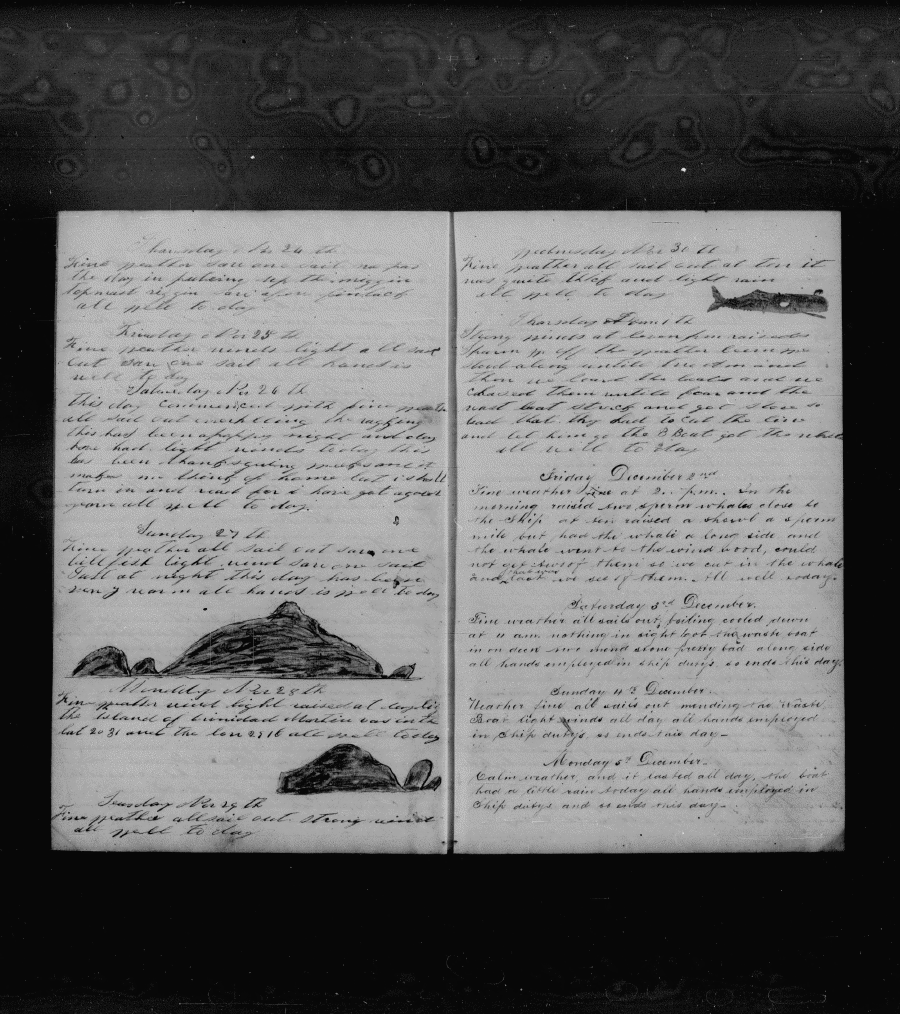 Thursday Nov 24 th
Fine weather saw one sail
the day in putting up the mizzin
topmast rigin saw
all well to day
Friday Nov 25 th
Fine weather winds light all sail
out saw one sail all hands is
well to day
Saturday Nov 26 th
this day commenced with fine weather
all sail out
this has been a night and day
have had light winds today this
has been thanksgiving and it
makes me think of home but i shall
turn in and read for i have got a good
yarn all well to day.
Sunday 27 th
Fine weather all sail out saw one
billfish light wind saw one sail
Just at night this day has been
very warm all hands is well to day
Monday Nov 28 th
Fine weather wind light raised at daylight
the Island of Trinidad Martin vas in the
lat 20 31 and the lon 29 16 all well today
Tuesday Nov 29 th
Fine weather all sail out strong wind
all well to day
Wednesday Nov 30 th
Fine weather all sail out at ten it
was quite thick and light rain
all well to day
Thursday Dec 1 th
Strong winds at seven pm raised
Sparm of the
stood along untile two Am and
then we lowered the boats and we
chased them untile four and the
wast boat struck and got stove so
bad that they had to cut the line
and let him go the B Boat got the whale
all well to day
Friday December 2nd
Fine weather fine at 2. p.m. In the
morning raised two sperm whales close to
the Ship at ten raised a showl a sperm
mile but had the whale a long side and
the whale went to the wind bood, could
not get two of them so we cut in the whale
and that was last we see of them. All well today.
Saturday 3rd December.
Fine weather all sails out, boiling cooled down
at 11 am. nothing in sight Got the waste boat
in on deck two mend stove pretty bad along side
all hands employed in ship dutys, so ends this day.
Sunday 4th December.
Weather fine all sails out mending the Waste
Boat light winds all day all hands employed
in Ship dutys, so ends this day—
Monday 5th December—
Calm weather, and it lasted all day, the boat
had a little rain today all hands employed in
Ship dutys and so ends this day—